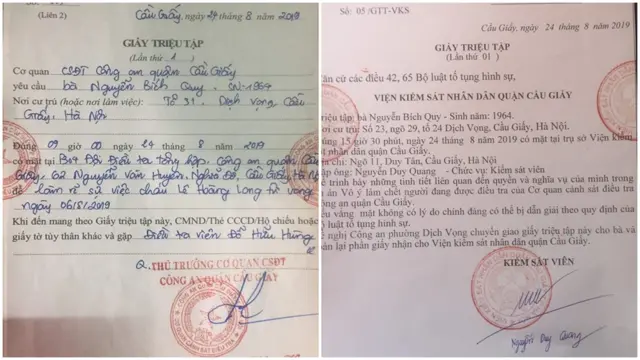 (Liên 2)
Cầu Giấy, ngày 24 tháng 8 năm 2019
GIẤY TRIỆU TẬP
(Lần thứ 1)
Cơ quan CSĐT Công an quận Cầu Giấy
yêu cầu bà Nguyễn Bích Quy - CN-1964
Nơi cư trú (hoặc nơi làm việc): Tổ 31, Dịch Vọng Cầu
Giấy, Hà Nội
Đúng 09 giờ 00 ngày 24 tháng 8 năm 2019
có mặt tại Đội Điều tra tổng hợp. Công an quận Cầu
Giấy. 62 Nguyễn Văn Huyên. Nghĩa Đô, Cầu Giấy, Hà Nội
để làm rõ sự việc cháu Lê Hoàng Long tử vong
ngày 06/8/2019
Khi đến mang theo Giấy triệu tập này, CMND/Thẻ CCCD/Hộ chiếu hoặc
giấy tờ tùy thân khác và gặp Điều tra viên Đỗ Hữu Hưng
THỦ TRƯỞNG CƠ QUAN CSĐT
CÔNG AN QUẬN CẦU GIẤY
Số: 05 /GTT-VKS
Cầu Giấy, ngày 24 tháng 8 năm 2019
GIẤY TRIỆU TẬP
(Lần thứ: 01)
cứ các điều 42, 65 Bộ luật tố tụng hình sự,
VIỆN KIỂM SÁT NHÂN DÂN QUẬN CẦU GIẤY
triệu tập: bà Nguyễn Bích Quy - Sinh năm: 1964.
cư trú: Số 23, ngõ 29, tổ 24 Dịch Vọng, Cầu Giấy, Hà Nội.
15 giờ 30 phút, ngày 24 tháng 8 năm 2019 có mặt tại trụ sở Viện kiểm
nhân dân quận Cầu Giấy.
chỉ: Ngõ 11, Duy Tân, Cầu Giấy, Hà Nội
gặp ông: Nguyễn Duy Quang - Chức vụ: Kiểm sát viên
trình bày những tình tiết liên quan đến quyền và nghĩa vụ của mình trong
án Vô ý làm chết người đang được điều tra của Cơ quan cảnh sát điều tra
quận Cầu Giấy.
vắng mặt không có lý do chính đáng có thể bị dẫn giải theo quy định của
luật tố tụng hình sự.
nghị Công an phường Dịch Vọng chuyển giao giấy triệu tập này cho bà và
lại phần giấy nhận cho Viện kiểm sát nhân dân quận Cầu Giấy.
KIỂM SÁT VIÊN
Nguyễn Duy Quang